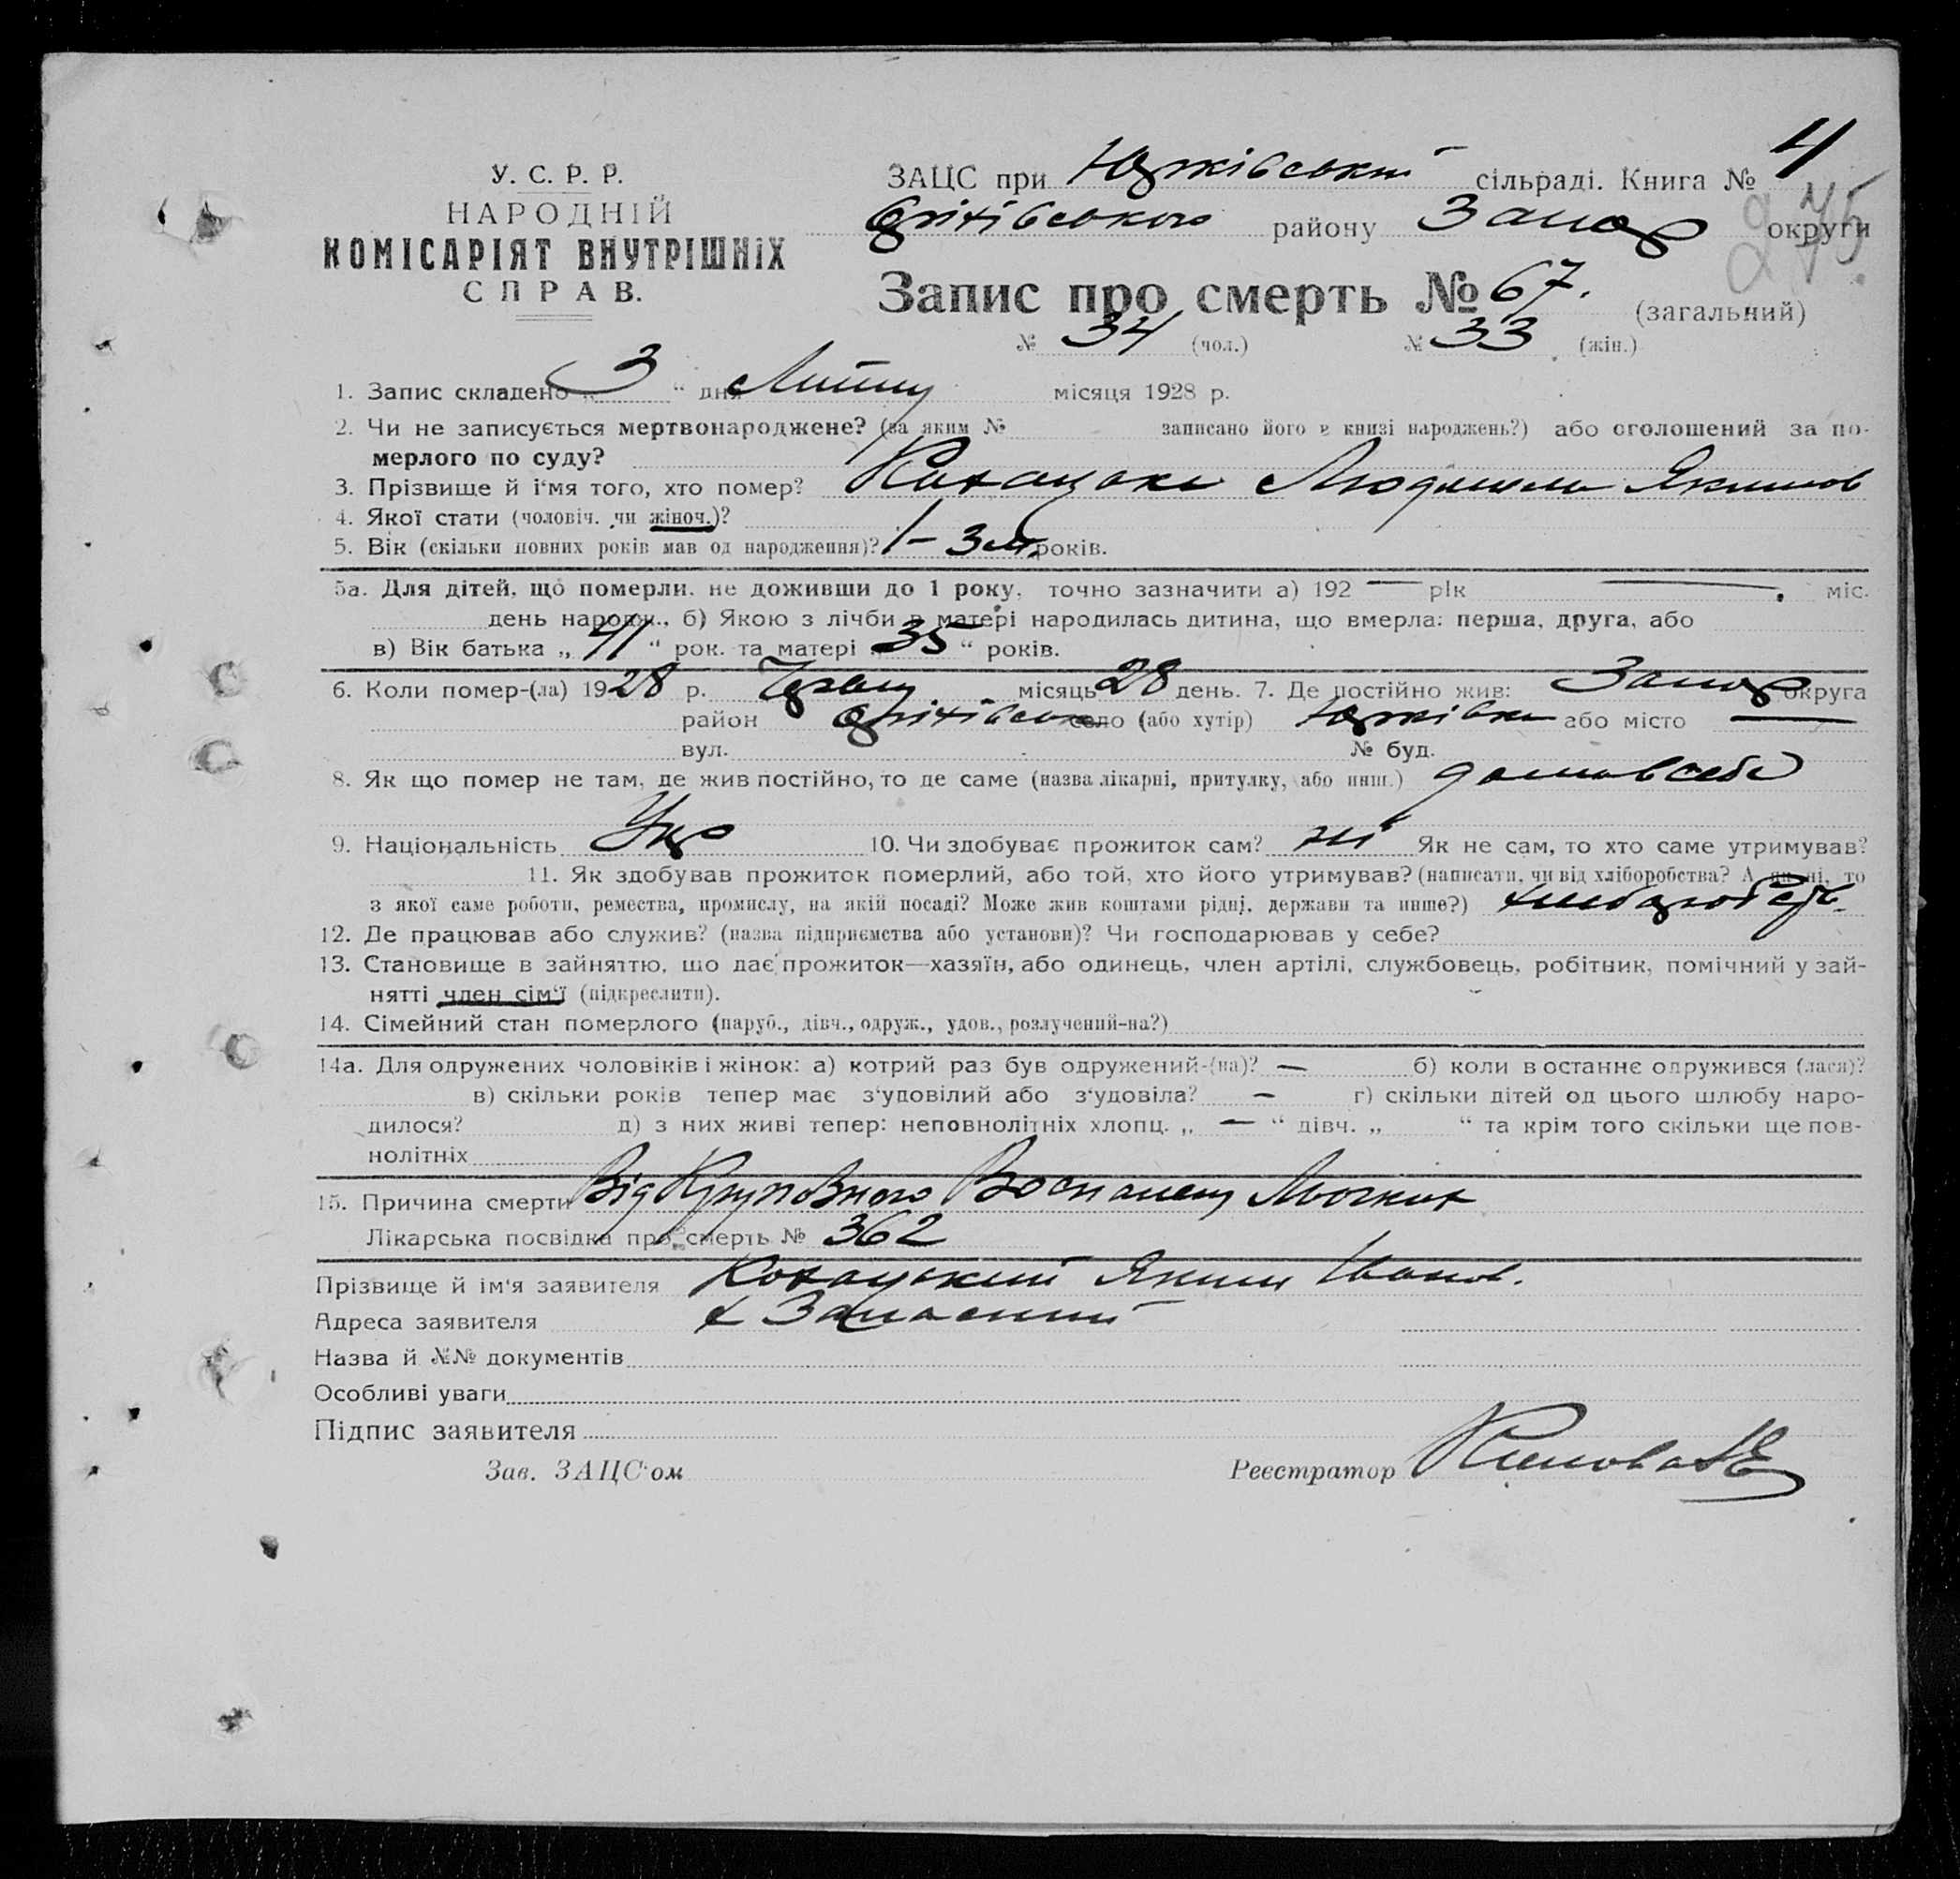 У. С. Р. Р.
НАРОДНІЙ
КОМІСАРІЯТ ВНУТРІШНІХ
СПРАВ.
ЗАЦС при Юрківський сільраді. Книга № 4
275
Оріхівського району Запор округи
Запис про смерть № 67. (загальний)
№ 34 (чол.) № 33 (жін.)
1. Запис складено „ 3 “ дня Липню місяця 1928 р.
2. Чи не записується мертвонароджене? (за яким № записано його в книзі народжень?) або оголошений за по-
мерлого по суду?
3. Прізвище й і'мя того, хто помер? Людмила Якимов
4. Якої стати (чоловіч. чи жіноч.)?
5. Вік (скільки повних років мав од народження)? 1 - 3 м. років.
5а. Для дітей, що померли, не доживши до 1 року, точно зазначити а) 192 — рік — міс.
день народж., б) Якою з лічби в матері народилась дитина, що вмерла: перша, друга, або
в) Вік батька „ 41 “ рок. та матері „ 35 “ років.
6. Коли помер-(ла) 1928 р. місяць 28 день. 7. Де постійно жив: Запор округа
район Оріхівськ село (або хутір) Юрківка або місто —
вул. № буд.
8. Як що помер не там, де жив постійно, то де саме (назва лікарні, притулку, або инш.) дома в себе
9. Національність Укр 10. Чи здобуває прожиток сам? ні Як не сам, то хто саме утримував?
11. Як здобував прожиток померлий, або той, хто його утримував? (написати, чи від хліборобства? А як ні, то
з якої саме роботи, ремества, промислу, на якій посаді? Може жив коштами рідні, держави та инше?)
12. Де працював або служив? (назва підприємства або установи)? Чи господарював у себе?
13. Становище в зайняттю, шо дає прожиток—хазяїн, або одинець, член артілі, службовець, робітник, помічний у зай-
нятті член сім'ї (підкреслити).
14. Сімейний стан померлого (паруб., дівч., одруж., удов., розлучений-на?)
14а. Для одружених чоловіків і жінок: а) котрий раз був одружений-(на)? — б) коли в останнє одружився (лася)?
в) скільки років тепер має з'удовілий або з'удовіла? — г) скільки дітей од цього шлюбу наро-
дилося? д) з них живі тепер: неповнолітніх хлопц. „ — “ дівч. „ “ та крім того скільки ще пов-
нолітніх
15. Причина смерти Від Крупозного Воспалену Льогких
Лікарська посвідка про смерть № 362
Прізвище й ім'я заявителя Яким Іванов.
Адреса заявителя х Запасний
Назва й №№ документів
Особливі уваги
Підпис заявителя
Зав. ЗАЦС'ом Реєстратор